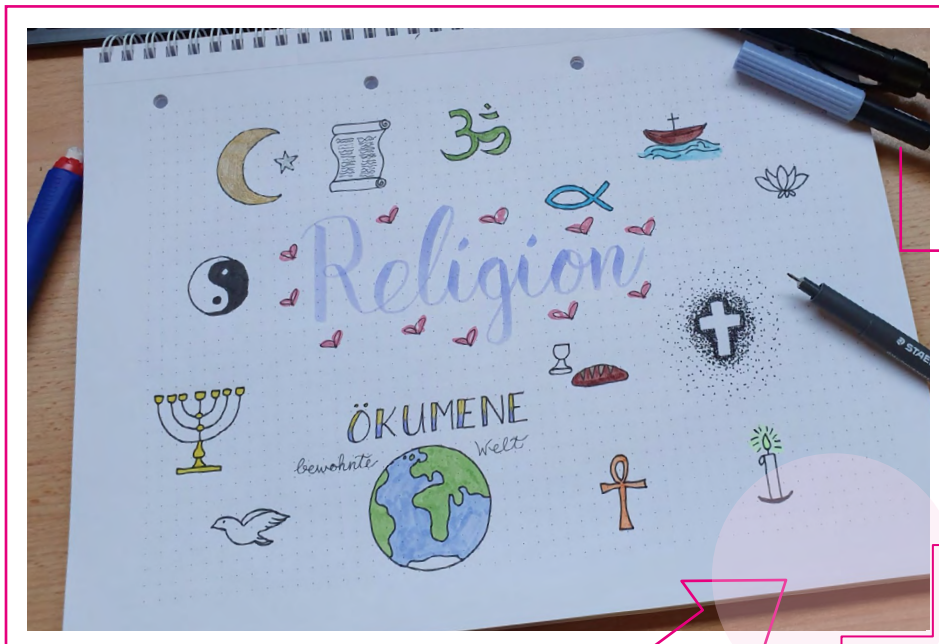 Religion
ÖKUMENE
bewohnte Welt
STAE